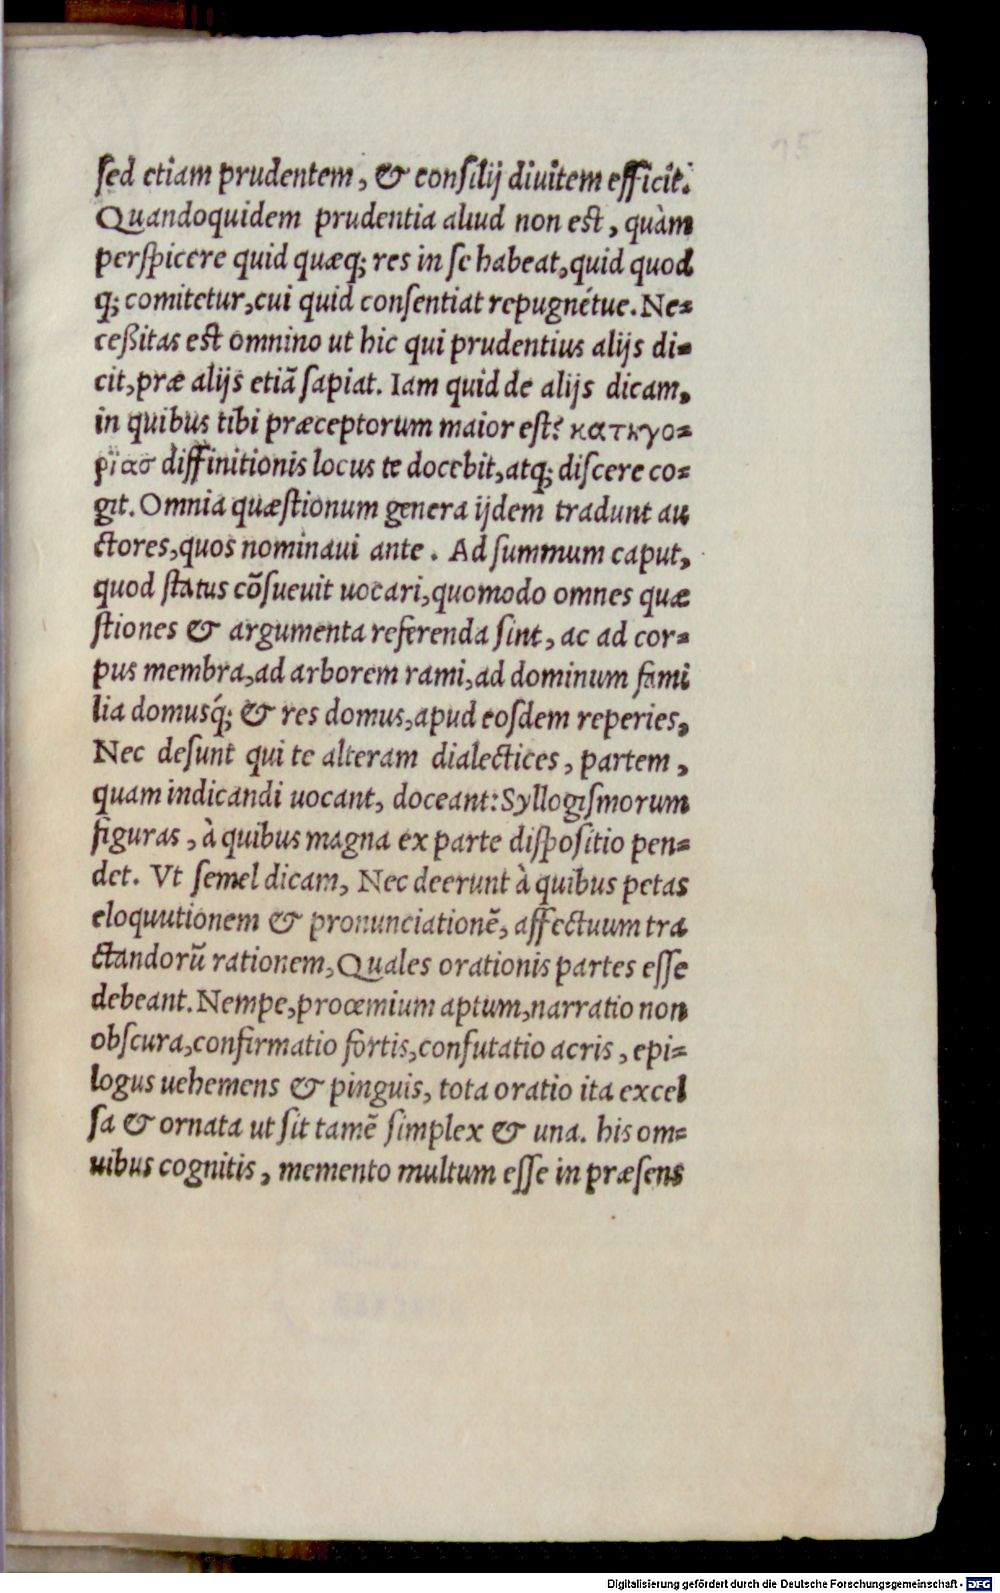 sed etiam prudentem, & consilij diuitem efficit.
Quandoquidem prudentia aliud non est, quàm
perspicere quid quæq; res in se habeat, quid quod
q; comitetur, cui quid consentiat repugnétue. Ne=
ceßitas est omnino ut hic qui prudentius alijs di=
cit, præ alijs etiã sapiat. Iam quid de alijs dicam,
in quibus tibi præceptorum maior est? κατκγο=
ρίασ diffinitionis locus te docebit, atq; discere co=
git. Omnia quæstionum genera ijdem tradunt au
ctores, quos nominaui ante. Ad summum caput,
quod status cõsueuit uocari, quomodo omnes quæ
stiones & argumenta referenda sint, ac ad cor=
pus membra, ad arborem rami, ad dominum fami
lia domusq́; & res domus, apud eosdem reperies,
Nec desunt qui te alteram dialectices, partem,
quam indicandi uocant, doceant: Syllogismorum
figuras, à quibus magna ex parte dispositio pen=
det. Vt semel dicam, Nec deerunt à quibus petas
eloquutionem & pronunciationẽ, affectuum tra
ctandorũ rationem, Quales orationis partes esse
debeant. Nempe, proœmium aptum, narratio non
obscura, confirmatio fortis, confutatio acris, epi=
logus uehemens & pinguis, tota oratio ita excel
sa & ornata ut sit tamẽ simplex & una. his om=
uibus cognitis, memento multum esse in præsens
Digitalisierung gefördert durch die Deutsche Forschungsgemeinschaft - DFG